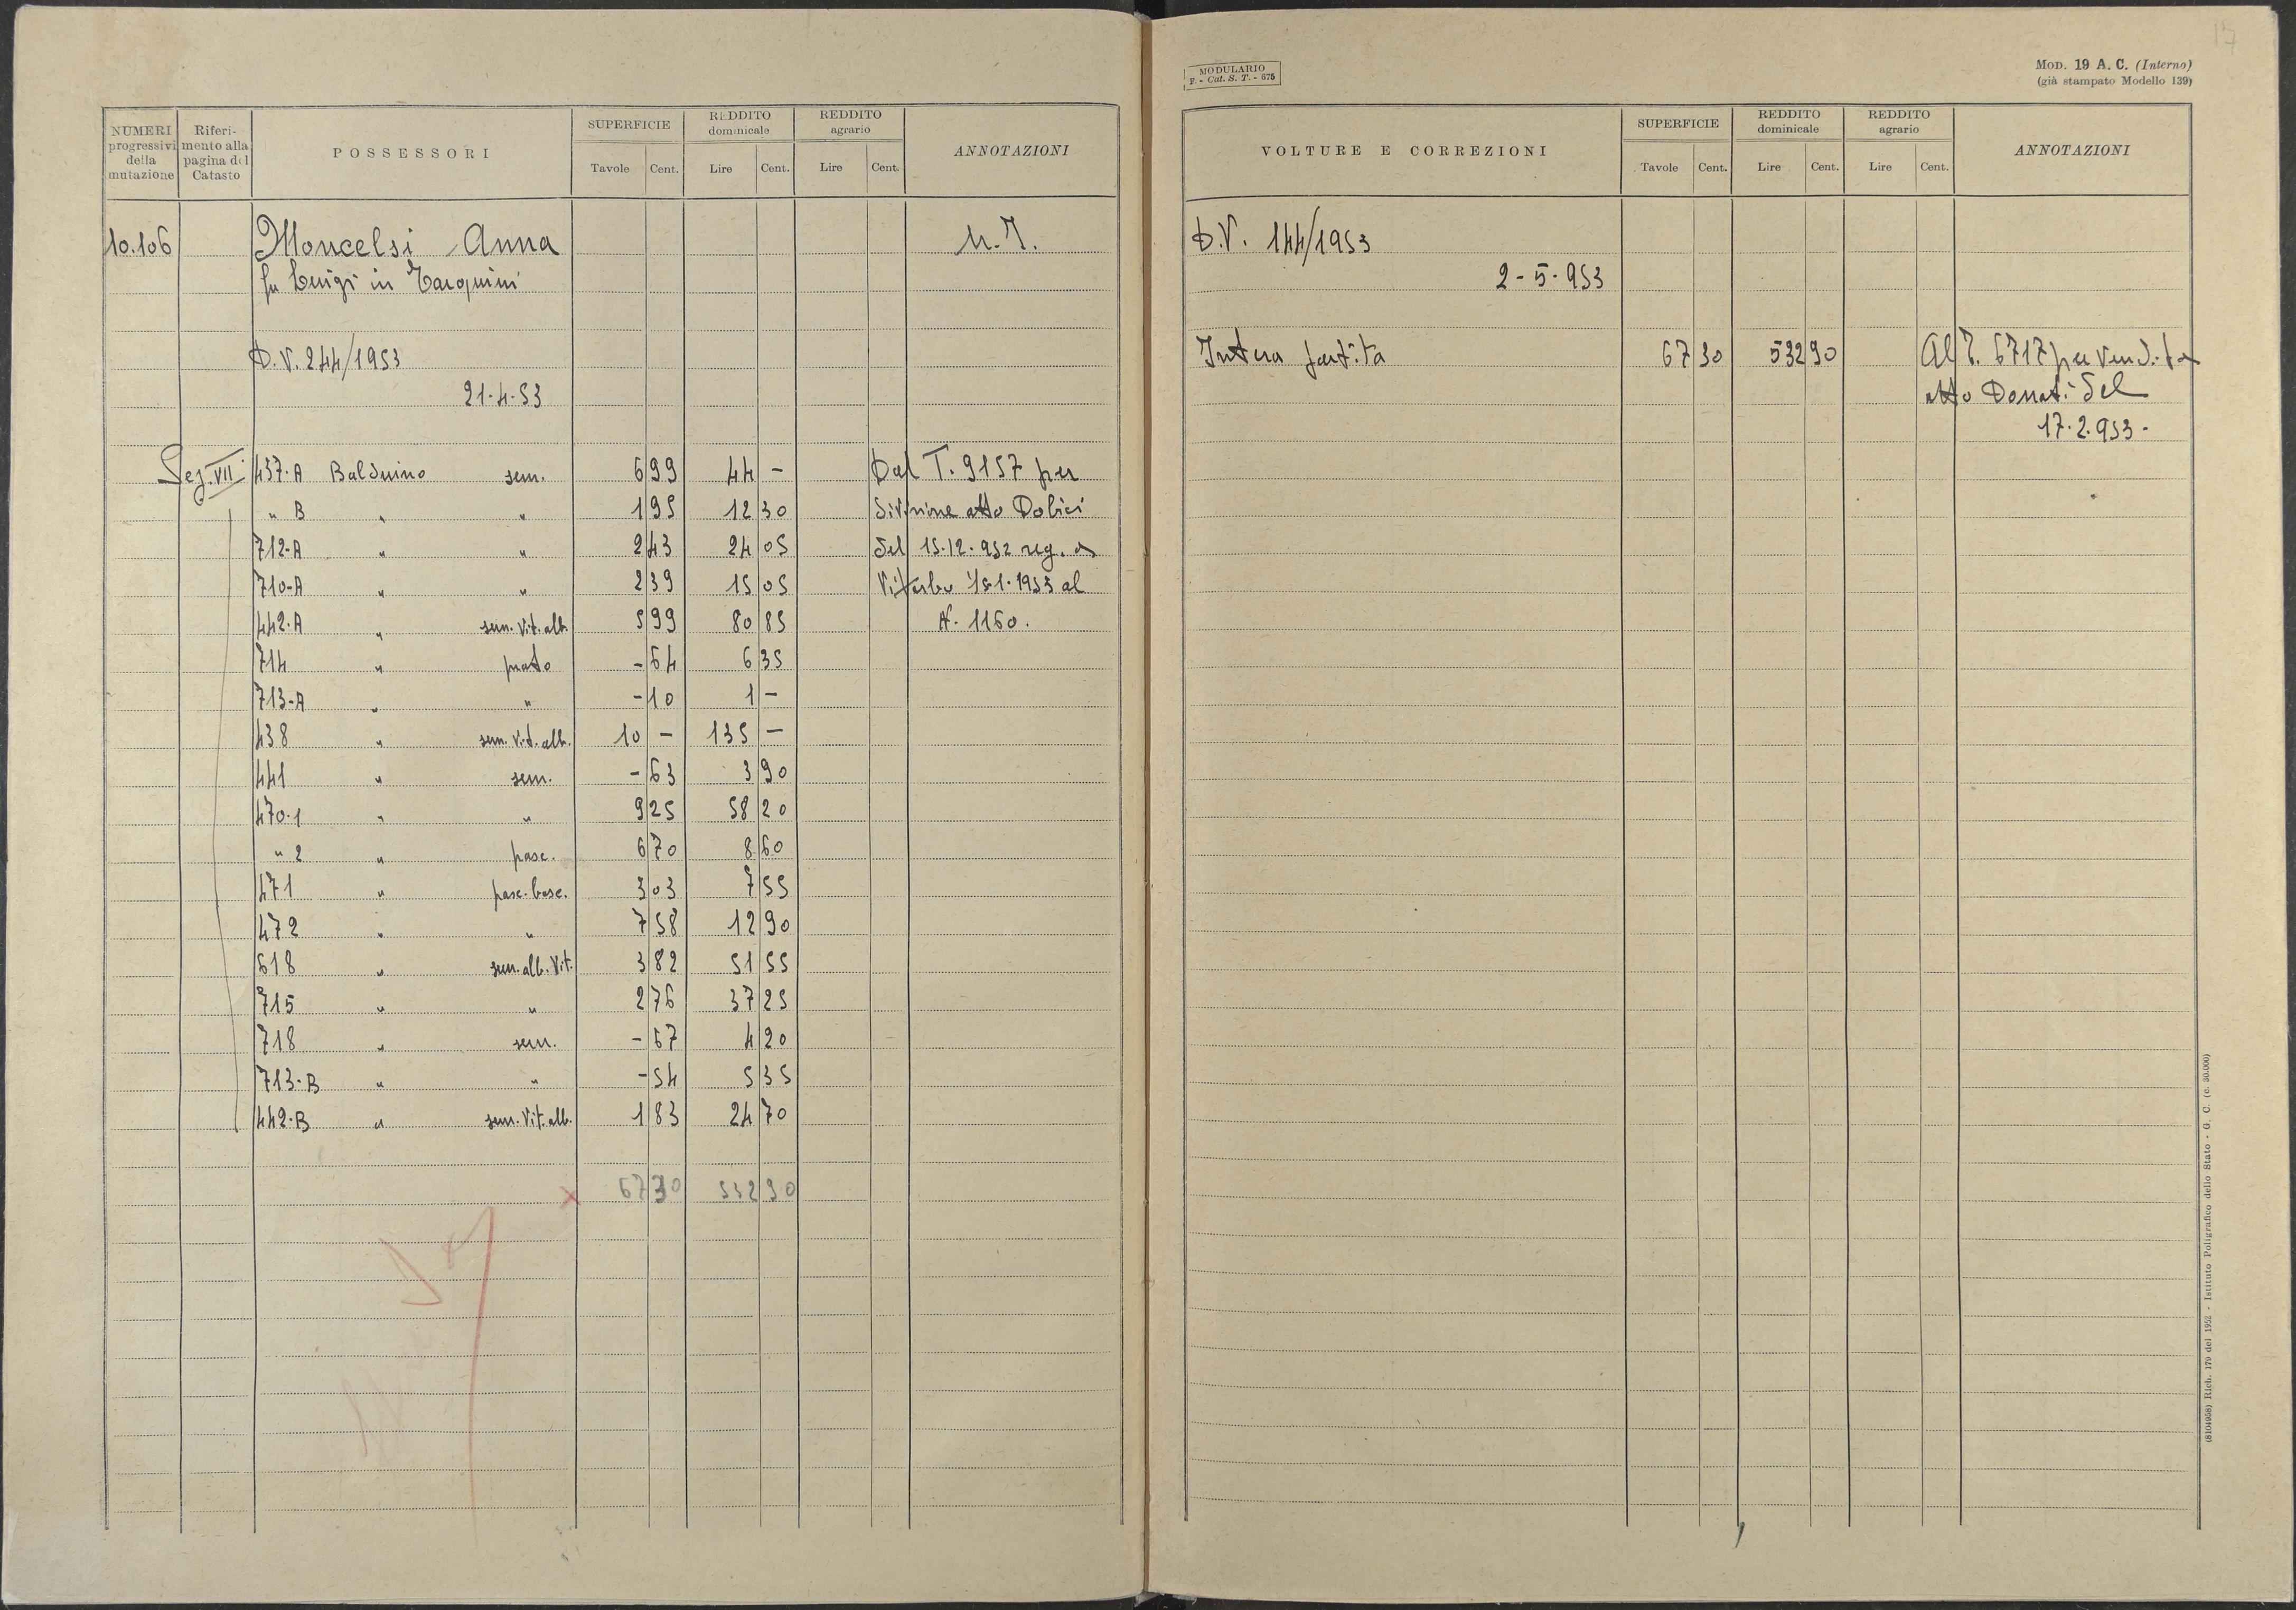 NUMERI progressivi della mutazione | Riferimento alla pagina del Catasto | POSSESSORI | SUPERFICIE Tavole Cent. | REDDITO dominicale Lire Cent. | REDDITO agrario Lire Cent. | ANNOTAZIONI
10.106 Moncelsi Anna
fu Luigi in Tarquini
D.V. 244/1953
21.4.53
Sez. VII 437-A Balduino sem. 6 99 44 - Dal T. 9157 per
" B " " 1 95 12 30 Divisione atto Dobici
712-A " " 2 43 24 05 del 15.12.952 reg. a
710-A " " 2 39 15 05 Viterbo 1953 al
442.A " sem. vit. alb. 5 99 80 85 N. 1160.
714 " prato - 64 6 35
713-A " " - 10 1 -
438 " sem. vit. alb. 10 - 135 -
441 " sem. - 63 3 90
470.1 " " 9 25 58 20
" 2 " pasc. 6 70 8 60
471 " pasc. bosc. 3 03 7 55
472 " " 7 58 12 90
618 " sem. alb. vit. 3 82 51 55
715 " " 2 76 37 25
718 " sem. - 67 4 20
713-B " " - 54 5 35
442-B " sem. vit. alb. 1 83 24 70
x 67 30 532 90
17
MODULARIO
F. - Cat. S. T. - 675
MOD. 19 A. C. (Interno)
(già stampato Modello 139)
VOLTURE E CORREZIONI | SUPERFICIE Tavole Cent. | REDDITO dominicale Lire Cent. | REDDITO agrario Lire Cent. | ANNOTAZIONI
D.V. 144/1953
2-5-953
Intera partita 67 30 532 90 Al T. 6717 per vendita
atto Donati del
17.2.953.
(8104958) Rich. 179 del 1952 - Istituto Poligrafico dello Stato - G. C. (c. 30.000)